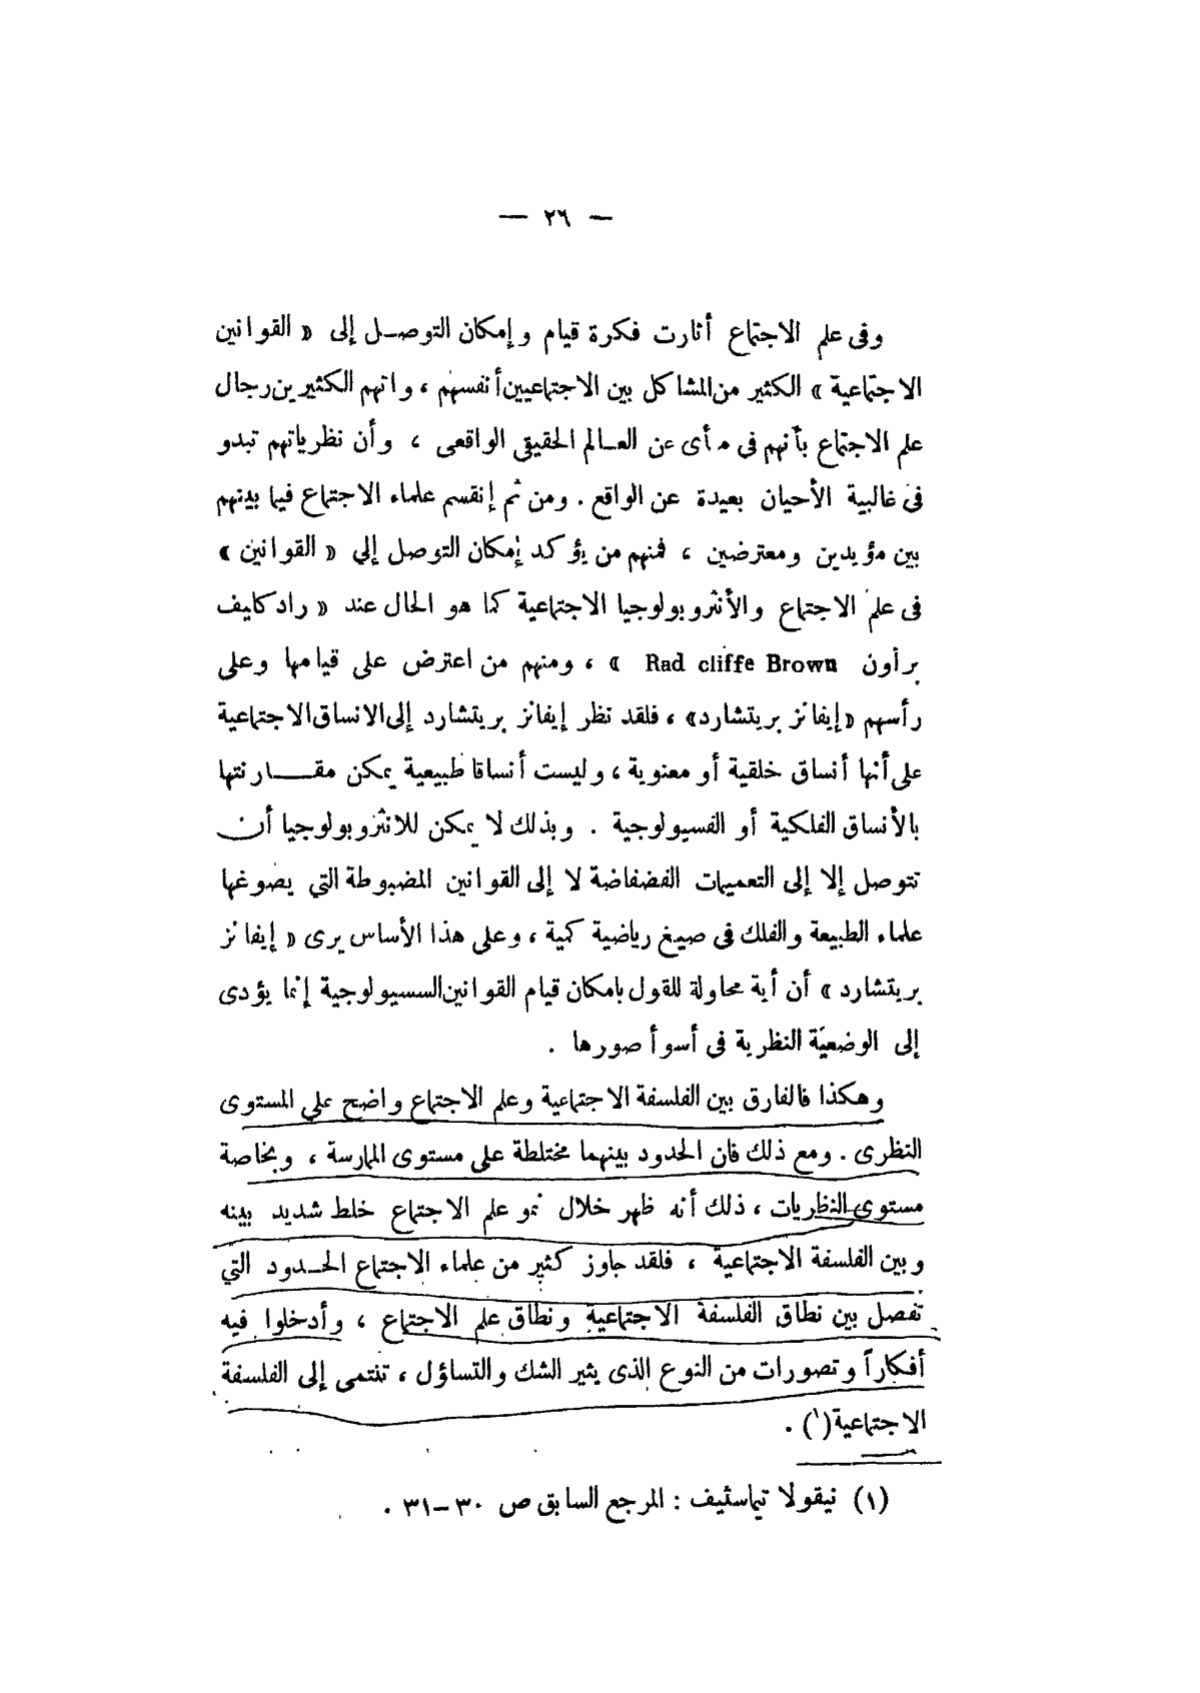 — ٢٦ —
وفى علم الاجتماع أثارت فكرة قيام وإمكان التوصل إلى « القوانين
الاجتماعية » الكثير من المشاكل بين الاجتماعيين أنفسهم ، واتهم الكثيرين رجال
علم الاجتماع بأنهم فى مأى عن العالم الحقيقى الواقعى ، وأن نظرياتهم تبدو
فى غالبية الأحيان بعيدة عن الواقع . ومن ثم إنقسم علماء الاجتماع فيما بينهم
بين مؤيدين ومعترضين ، فمنهم من يؤكد إمكان التوصل إلي « القوانين »
فى علم الاجتماع والأنثروبولوجيا الاجتماعية كما هو الحال عند « رادكليف
برأون Rad cliffe Brown » ، ومنهم من اعترض على قيامها وعلى
رأسهم «إيفانز بريتشارد» ، فلقد نظر إيفانز بريتشارد إلى الانساق الاجتماعية
على أنها أنساق خلقية أو معنوية ، وليست أنساقا طبيعية يمكن مقارنتها
بالأنساق الفلكية أو الفسيولوجية . وبذلك لا يمكن للانثروبولوجيا أن
تتوصل إلا إلى التعميمات الفضفاضة لا إلى القوانين المضبوطة التي يصوغها
علماء الطبيعة والفلك فى صيغ رياضية كمية ، وعلى هذا الأساس يرى « إيفانز
بريتشارد » أن أية محاولة للقول بامكان قيام القوانين السسيولوجية إنما يؤدى
إلى الوضعية النظرية فى أسوأ صورها .
وهكذا فالفارق بين الفلسفة الاجتماعية وعلم الاجتماع واضح علي المستوى
النظرى . ومع ذلك فان الحدود بينهما مختلطة على مستوى الممارسة ، وبخاصة
مستوى النظريات ، ذلك أنه ظهر خلال نمو علم الاجتماع خلط شديد بينه
وبين الفلسفة الاجتماعية ، فلقد جاوز كثير من علماء الاجتماع الحدود التي
تفصل بين نطاق الفلسفة الاجتماعية ونطاق علم الاجتماع ، وأدخلوا فيه
أفكاراً وتصورات من النوع الذى يثير الشك والتساؤل ، تنتمى إلى الفلسفة
الاجتماعية(١) .
(١) نيقولا تيماسئيف : المرجع السابق ص ٣٠–٣١ .